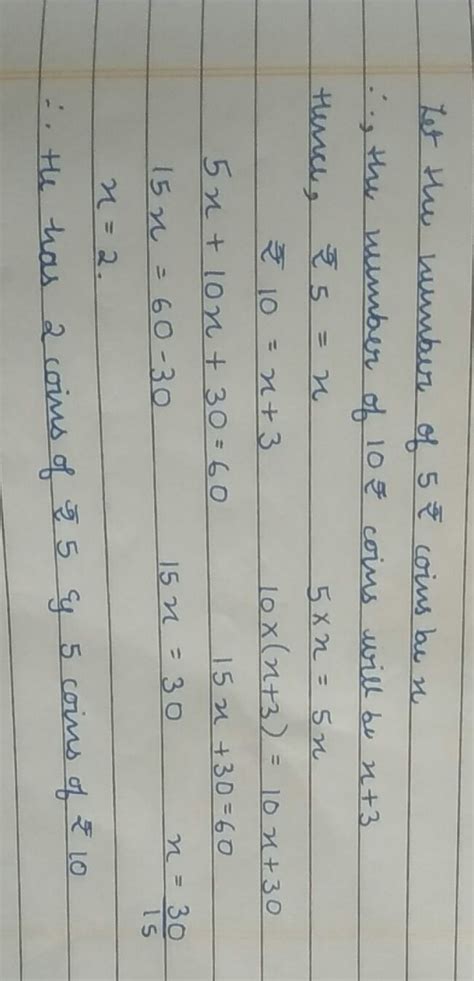 Let the number of 5 ₹ coins be x
∴, the number of 10 ₹ coins will be x+3
Hence, ₹ 5 = x 5 × x = 5x
₹ 10 = x + 3 10×(x+3) = 10x+30
5x + 10x + 30 = 60 15x + 30 = 60
15x = 60 - 30 15x = 30 x = 30/15
x = 2.
∴ He has 2 coins of ₹ 5 & 5 coins of ₹ 10